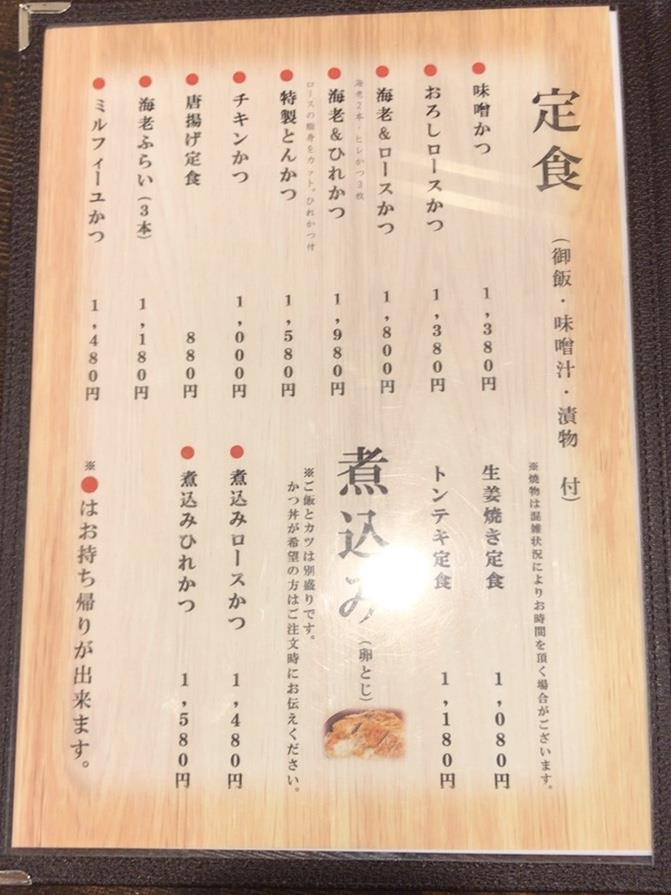 定食
(御飯・味噌汁・漬物 付)
●味噌かつ 1,380円
●おろしロースかつ 1,380円
●海老&ロースかつ 1,800円
●海老&ひれかつ 1,980円
海老2本・ヒレかつ3枚
●特製とんかつ 1,580円
ロースの脂身をカット。ひれかつ付
●チキンかつ 1,000円
●唐揚げ定食 880円
●海老ふらい(3本) 1,180円
●ミルフィーユかつ 1,480円
※焼物は混雑状況によりお時間を頂く場合がございます。
生姜焼き定食 1,080円
トンテキ定食 1,180円
煮込み(卵とじ)
※ご飯とカツは別盛りです。
かつ丼が希望の方はご注文時にお伝えください。
●煮込みロースかつ 1,480円
●煮込みひれかつ 1,580円
※●はお持ち帰りが出来ます。